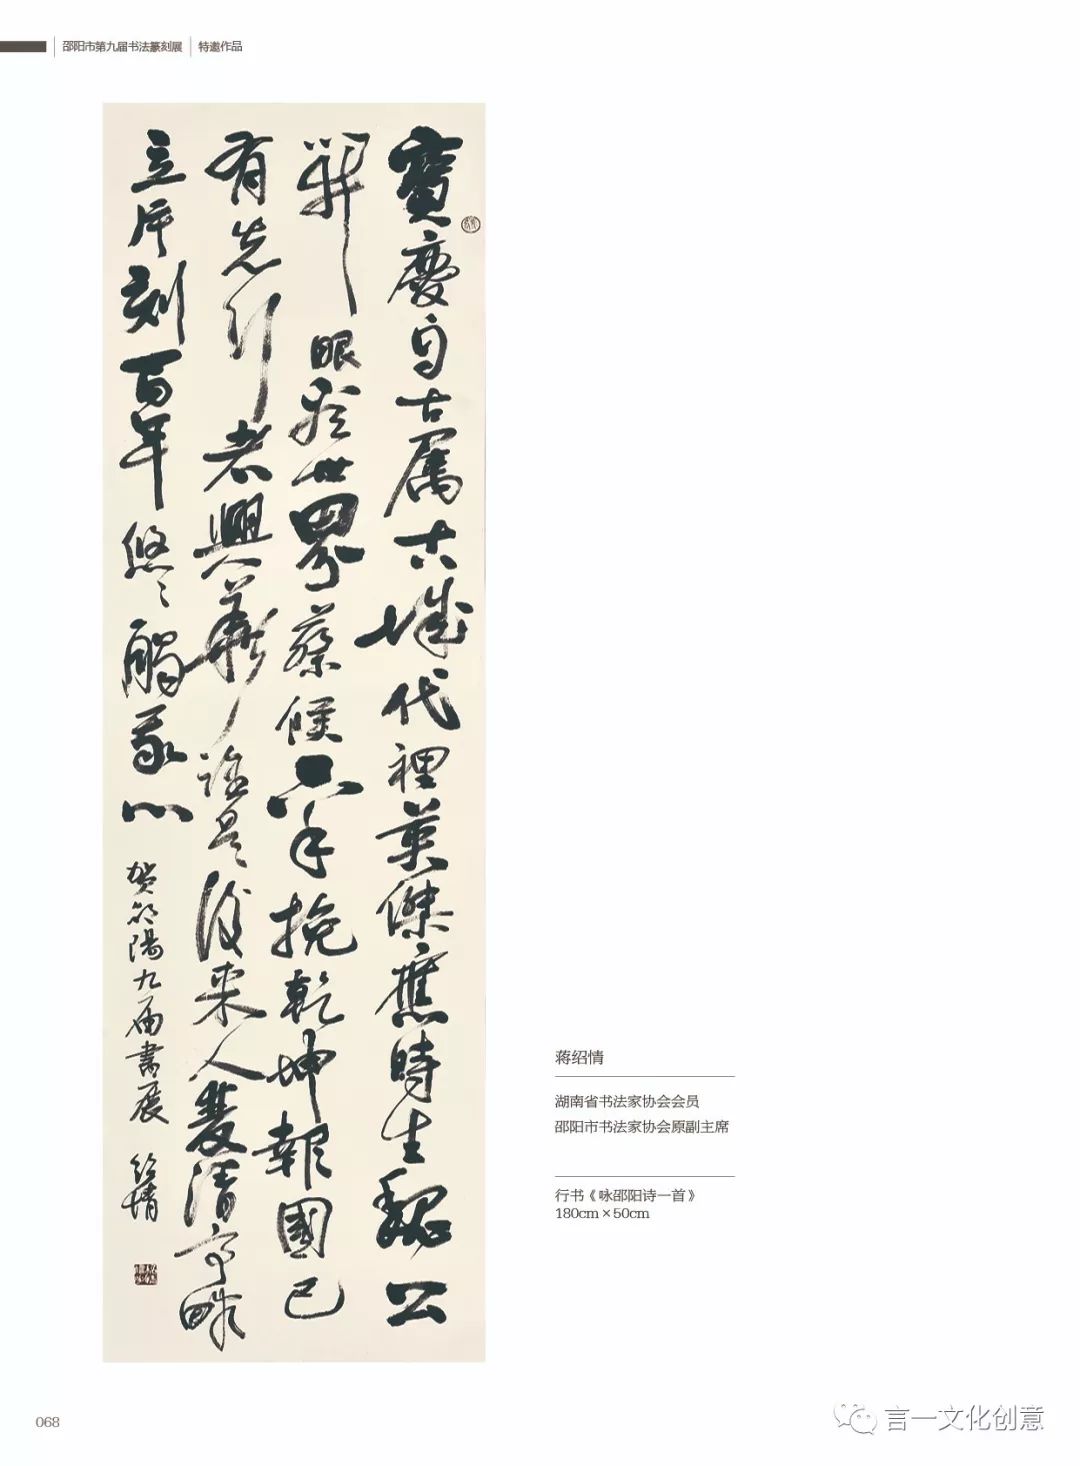 邵阳市第九届书法篆刻展 特邀作品
寶慶自古属古城代裡英傑應時生魏公
開眼看世界蔡候只手挽乾坤報國已
有先行者興華誰是後来人雙清亭畔
立片刻百年悠悠觸我心
賀邵陽九届書展 紹情
蒋绍情
湖南省书法家协会会员
邵阳市书法家协会原副主席
行书《咏邵阳诗一首》
180cm×50cm
068
言一文化创意